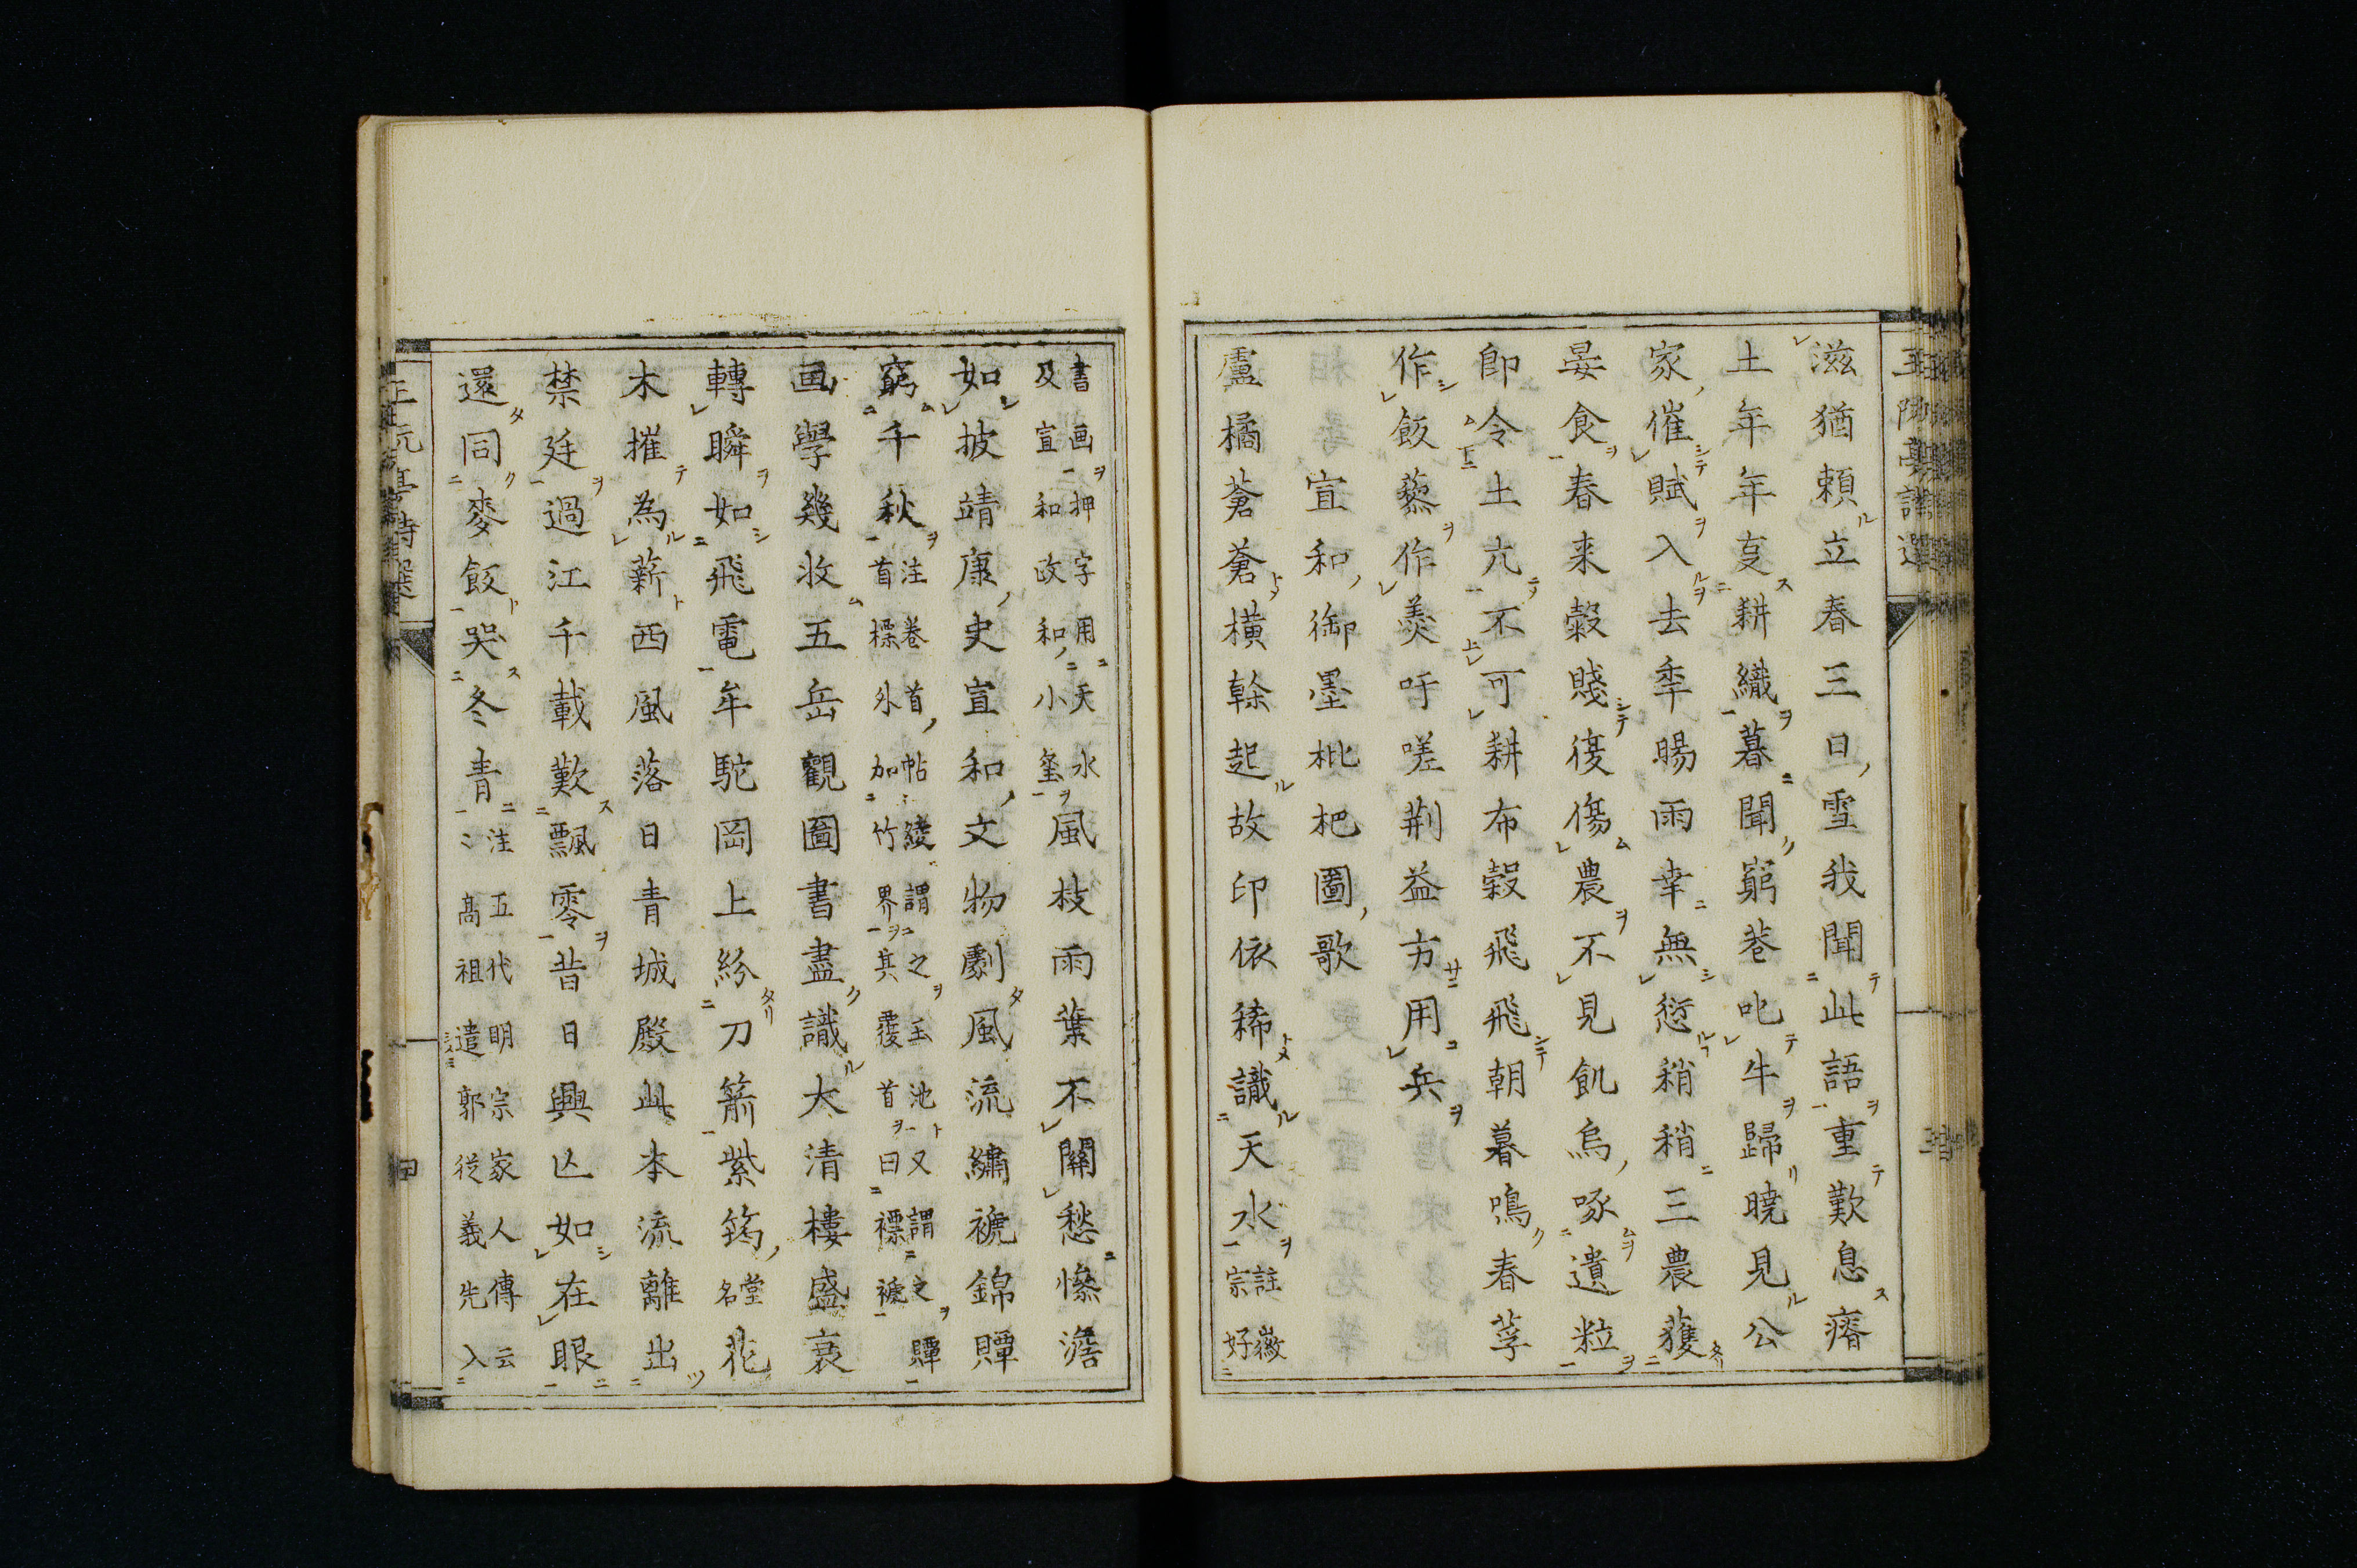 滋猶頼立春三日雪我聞此語重歎息瘠
土年年亥耕織暮聞窮巷叱牛歸曉見公
家催賦入去秊暘雨幸無愆稍稍三農獲
晏食春来穀賤復傷農不見飢烏啄遺粒
即令土亢不可耕布穀飛飛朝暮鳴春莩
作飯藜作羹吁嗟荆益方用兵
宣和御墨枇杷圖歌
盧橘蒼蒼橫榦起故印依稀識天水註徽
宗好
書画押字用天水
及宣和政和小璽風枝雨葉不關愁慘澹
如披靖康史宣和文物劇風流繡褫錦贉
窮千秋注卷首帖綾謂之玉池又謂之贉
首標外加竹界其覆首曰褾褫
画學幾收五岳觀圖書盡識大清樓盛衰
轉瞬如飛電牟駝岡上紛刀箭紫筠堂名花
木摧為薪西風落日青城殿此本流離出
禁廷過江千載歎飄零昔日興亡如在眼
還同麥飯哭冬青注五代明宗家人傳云
漢高祖遣郭從義先入